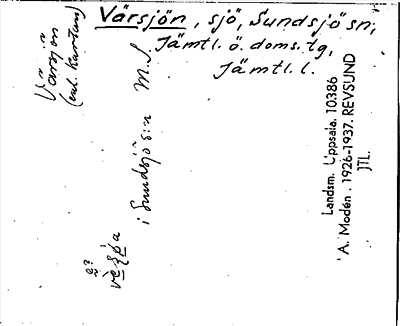 Värsjön, sjö, Sundsjö sn,
Jämtl. ö. doms. tg,
Jämtl. l.
Värsjön
(enl. Kartan)
i Sundsjö s:n M. S.
Landsm. Uppsala. 10386
A. Modén. 1926-1937. REVSUND
JTL.